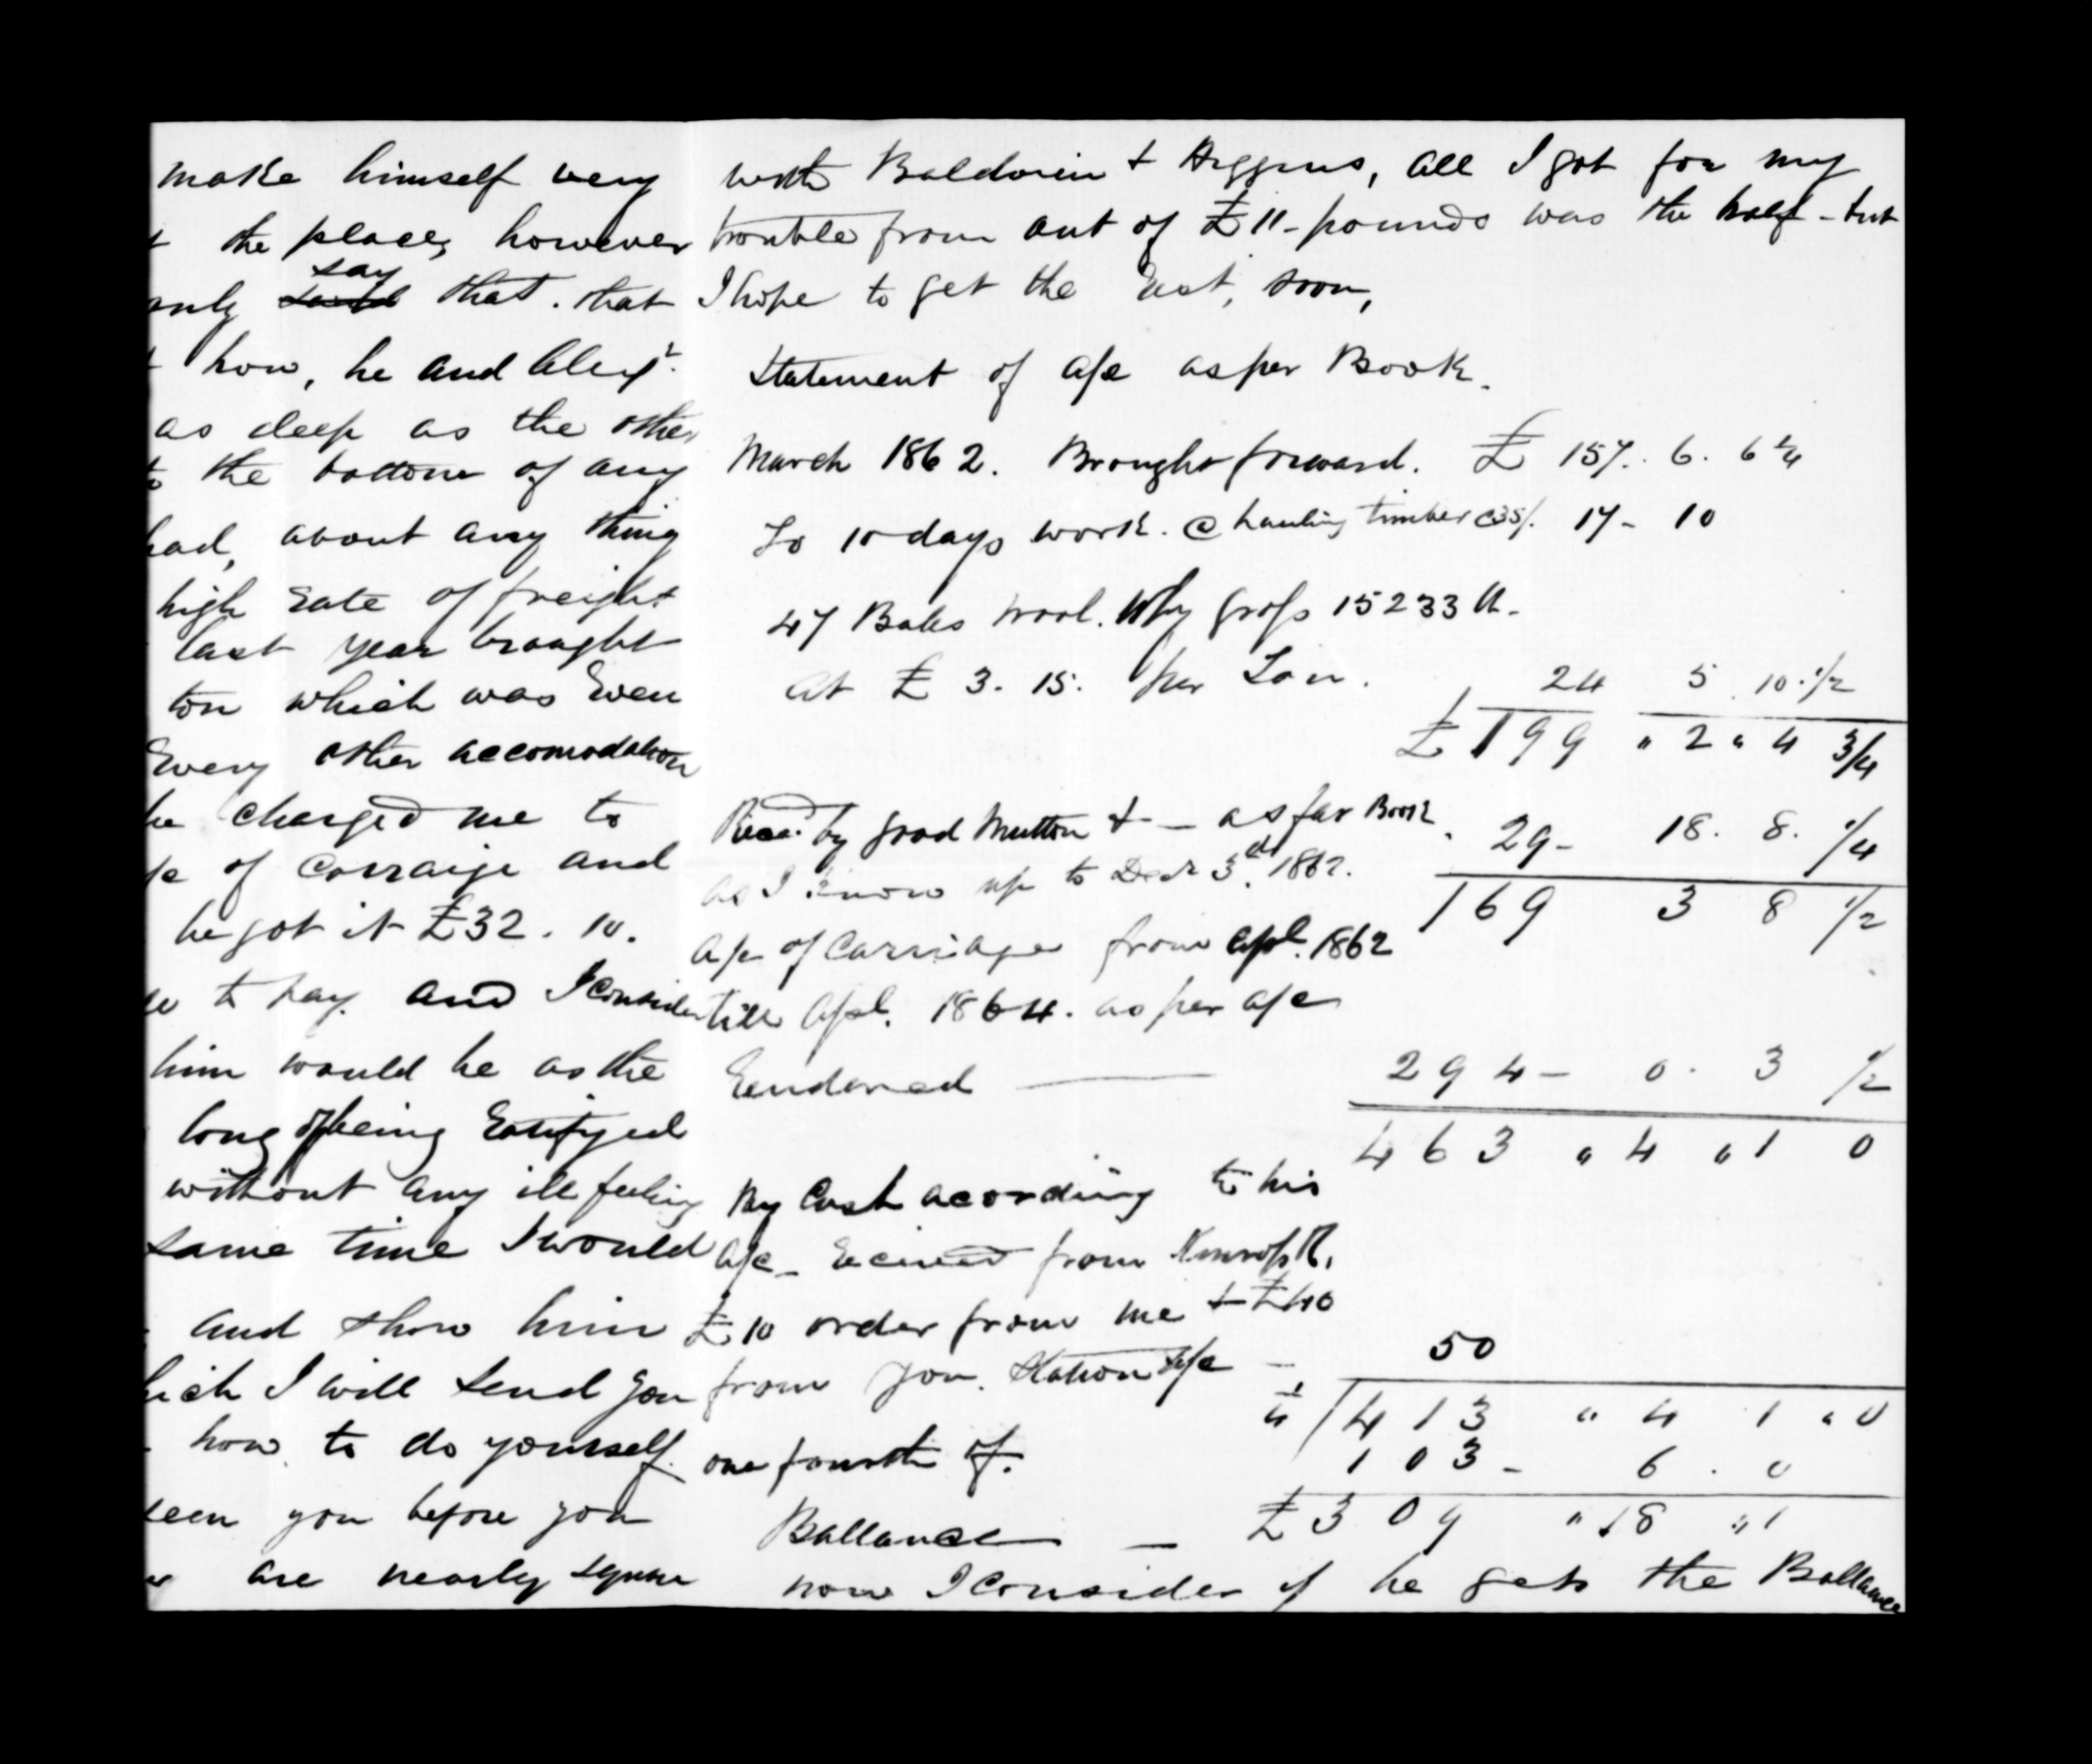 make himself very
the place, however
only say that. that
how, he and Alexr.
as deep as the other
to the bottom of any
had, about any thing
high Rate of freight
last year brought
ton which was Even
Every other accomodation
he charged me to
of Carraige and
he got it £32. 10.
to pay. and I consider
him would be as the
long of being
without any ill feeling
same time I would
and show him
hich I will send you
how to do yourself.
seen you before you
are nearly square
with Baldwin + Higgins, all I got for my
trouble from out of £11-pounds was the half - but
I hope to get the Rest, soon,
Statement of a/c as per Book.
March 1862. Brought forward. £ 157. 6. 6 1/4
To 10 days work. @ hauling timber @35/. 17- 10
47 Bales wool. Why gross 15233 lb.
At £ 3. 15. per Ton. 24 5 10 1/2
£199 " 2 " 4 3/4
Recd. by good Mutton + - as par Book. 29- 18. 8. 1/4
as I know up to Decr 3rd. 1862. 169 3 8 1/2
a/c of Carriage from Apl. 1862
till Apl. 1864. as per a/c
Rendered — 294- 0. 3 1/2
463 " 4 " 1 0
By Cash acording to his
a/c - Recieved from
£10 order from me + £40
from you. Station a/c - 50
1/4 / 413 " 4 1 " 0
one fourth of. 103 - 6 . 0
Ballance — £309 " 18 " 1
now I consider if he gets the Ballance